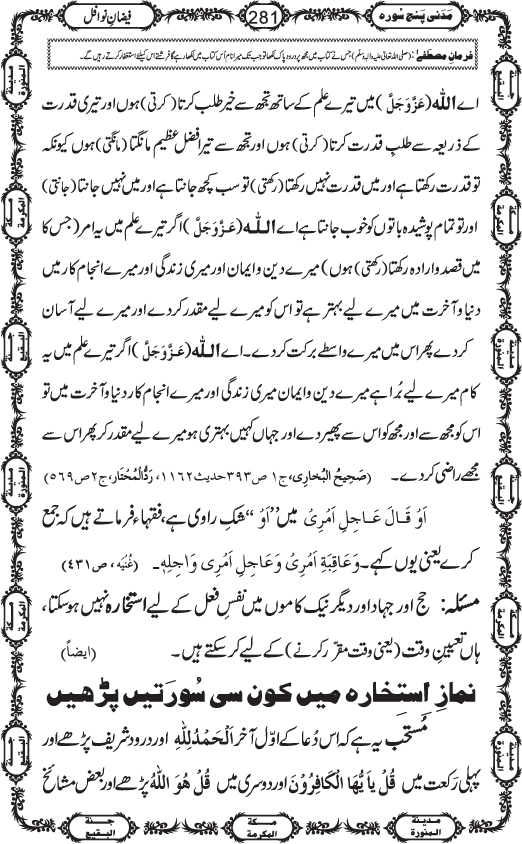 مَدَنی پنج سورہ
281
فیضانِ نوافل
فرمانِ مصطَفٰے : (صلی اللہ تعالیٰ علیہ واٰلہٖ وسلّم) جس نے کتاب میں مجھ پر درود پاک لکھا تو جب تک میرا نام اُس کتاب میں لکھا رہے گا فرشتے اس کیلئے استغفار کرتے رہیں گے۔
اے اللہ (عَزَّوَجَلَّ) میں تیرے علم کے ساتھ تجھ سے خیر طلب کرتا (کرتی) ہوں اور تیری قدرت
کے ذریعہ سے طلبِ قدرت کرتا (کرتی) ہوں اور تجھ سے تیرا فضل عظیم مانگتا (مانگتی) ہوں کیونکہ
تو قدرت رکھتا ہے اور میں قدرت نہیں رکھتا (رکھتی) تو سب کچھ جانتا ہے اور میں نہیں جانتا (جانتی)
اور تو تمام پوشیدہ باتوں کو خوب جانتا ہے اے اللہ (عَزَّوَجَلَّ) اگر تیرے علم میں یہ امر (جس کا
میں قصد و ارادہ رکھتا (رکھتی) ہوں) میرے دین و ایمان اور میری زندگی اور میرے انجام کار میں
دنیا و آخرت میں میرے لیے بہتر ہے تو اس کو میرے لیے مقدر کردے اور میرے لیے آسان
کردے پھر اس میں میرے واسطے برکت کردے۔ اے اللہ (عَزَّوَجَلَّ) اگر تیرے علم میں یہ
کام میرے لیے بُرا ہے میرے دین و ایمان میری زندگی اور میرے انجام کار دنیا و آخرت میں تو
اس کو مجھ سے اور مجھ کو اس سے پھیر دے اور جہاں کہیں بہتری ہو میرے لیے مقدر کر پھر اس سے
مجھے راضی کردے۔ (صَحِیحُ البُخارِی، ج۱ ص۳۹۳ حدیث ۱۱۶۲، رَدُّالمُحتار، ج۲ ص۵۶۹)
اَوْ قَالَ عَاجِلِ اَمْرِیْ میں ’’اَوْ‘‘ شکِ راوی ہے، فقہاء فرماتے ہیں کہ جمع
کرے یعنی یوں کہے۔ وَعَاقِبَةِ اَمْرِیْ وَعَاجِلِ اَمْرِیْ وَاٰجِلِهٖ۔ (غُنیَہ، ص۴۳۱)
مسئلہ: حج اور جہاد اور دیگر نیک کاموں میں نفسِ فعل کے لیے استخارہ نہیں ہوسکتا،
ہاں تعیینِ وقت (یعنی وقت مقرّر کرنے) کے لیے کرسکتے ہیں۔ (ایضاً)
نمازِ استخارہ میں کون سی سُورَتیں پڑھیں
مُستَحَب یہ ہے کہ اس دُعا کے اوّل آخر اَلْحَمْدُلِلّٰهِ اور درود شریف پڑھے اور
پہلی رَکعت میں قُلْ یٰۤاَیُّهَا الْكَافِرُوْنَ اور دوسری میں قُلْ هُوَ اللّٰهُ پڑھے اور بعض مشائخ